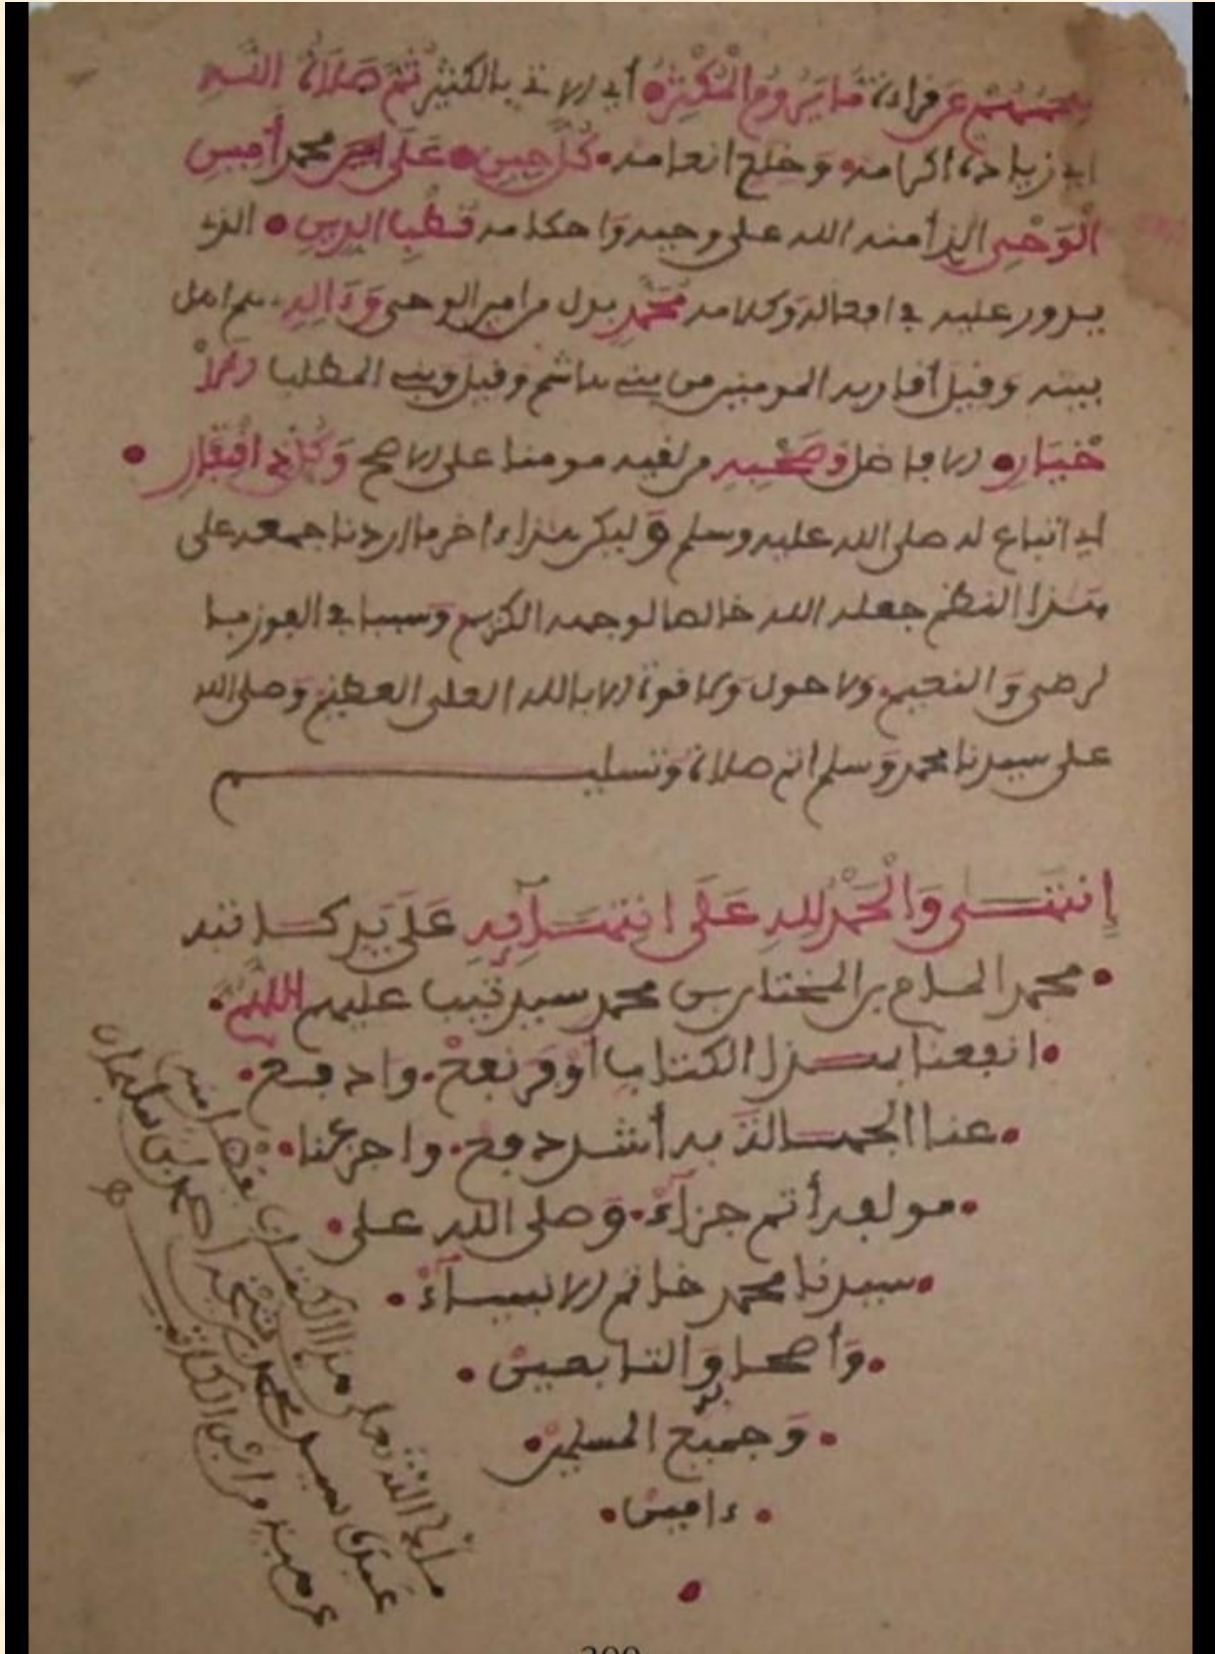 عن قراءة ما يروم المكثر أي الآتي بالكثير ثم صلاة الله
أي زيادة اكرامه وخلع انعامه كل حين على محمد أمين
الوحي الذي أمنه الله على وحيه واحكامه قطب الدين الذي
يدور عليه في افعاله وكلامه محمد بدل من امين الوحي وءاله هم اهل
بيته وقيل أقاربه المومنين من بني هاشم وقيل وبني المطلب الا
خيار الافاضل وصحبه من لقيه مومنا على الاصح وكل ذي اقتفار
أي اتباع له صلى الله عليه وسلم وليكن هذا ءاخر ما اردنا جمعه على
هذا النظم جعله الله خالصا لوجهه الكريم وسببا في الفوز با
لرضى والنعيم ولا حول ولا قوة الا بالله العلي العظيم وصلى الله
على سيدنا محمد وسلم اتم صلاة وتسليم
إنتهى والحمد لله على انتهائه على يد كاتبه
محمد الحاج بن المختار بن محمد سيد تيب عليهم اللهم
انفعنا بهذا الكتاب أوفر نفع وادفع
عنا الجهالة به أشد دفع واجز عنا
مولفه أتم جزاء وصلى الله على
سيدنا محمد خاتم الانبياء
وأصحابه والتابعين
وجميع المسلمين
ءامين
من الله على هذا الكتاب
عبده احمد بن سليمان
300